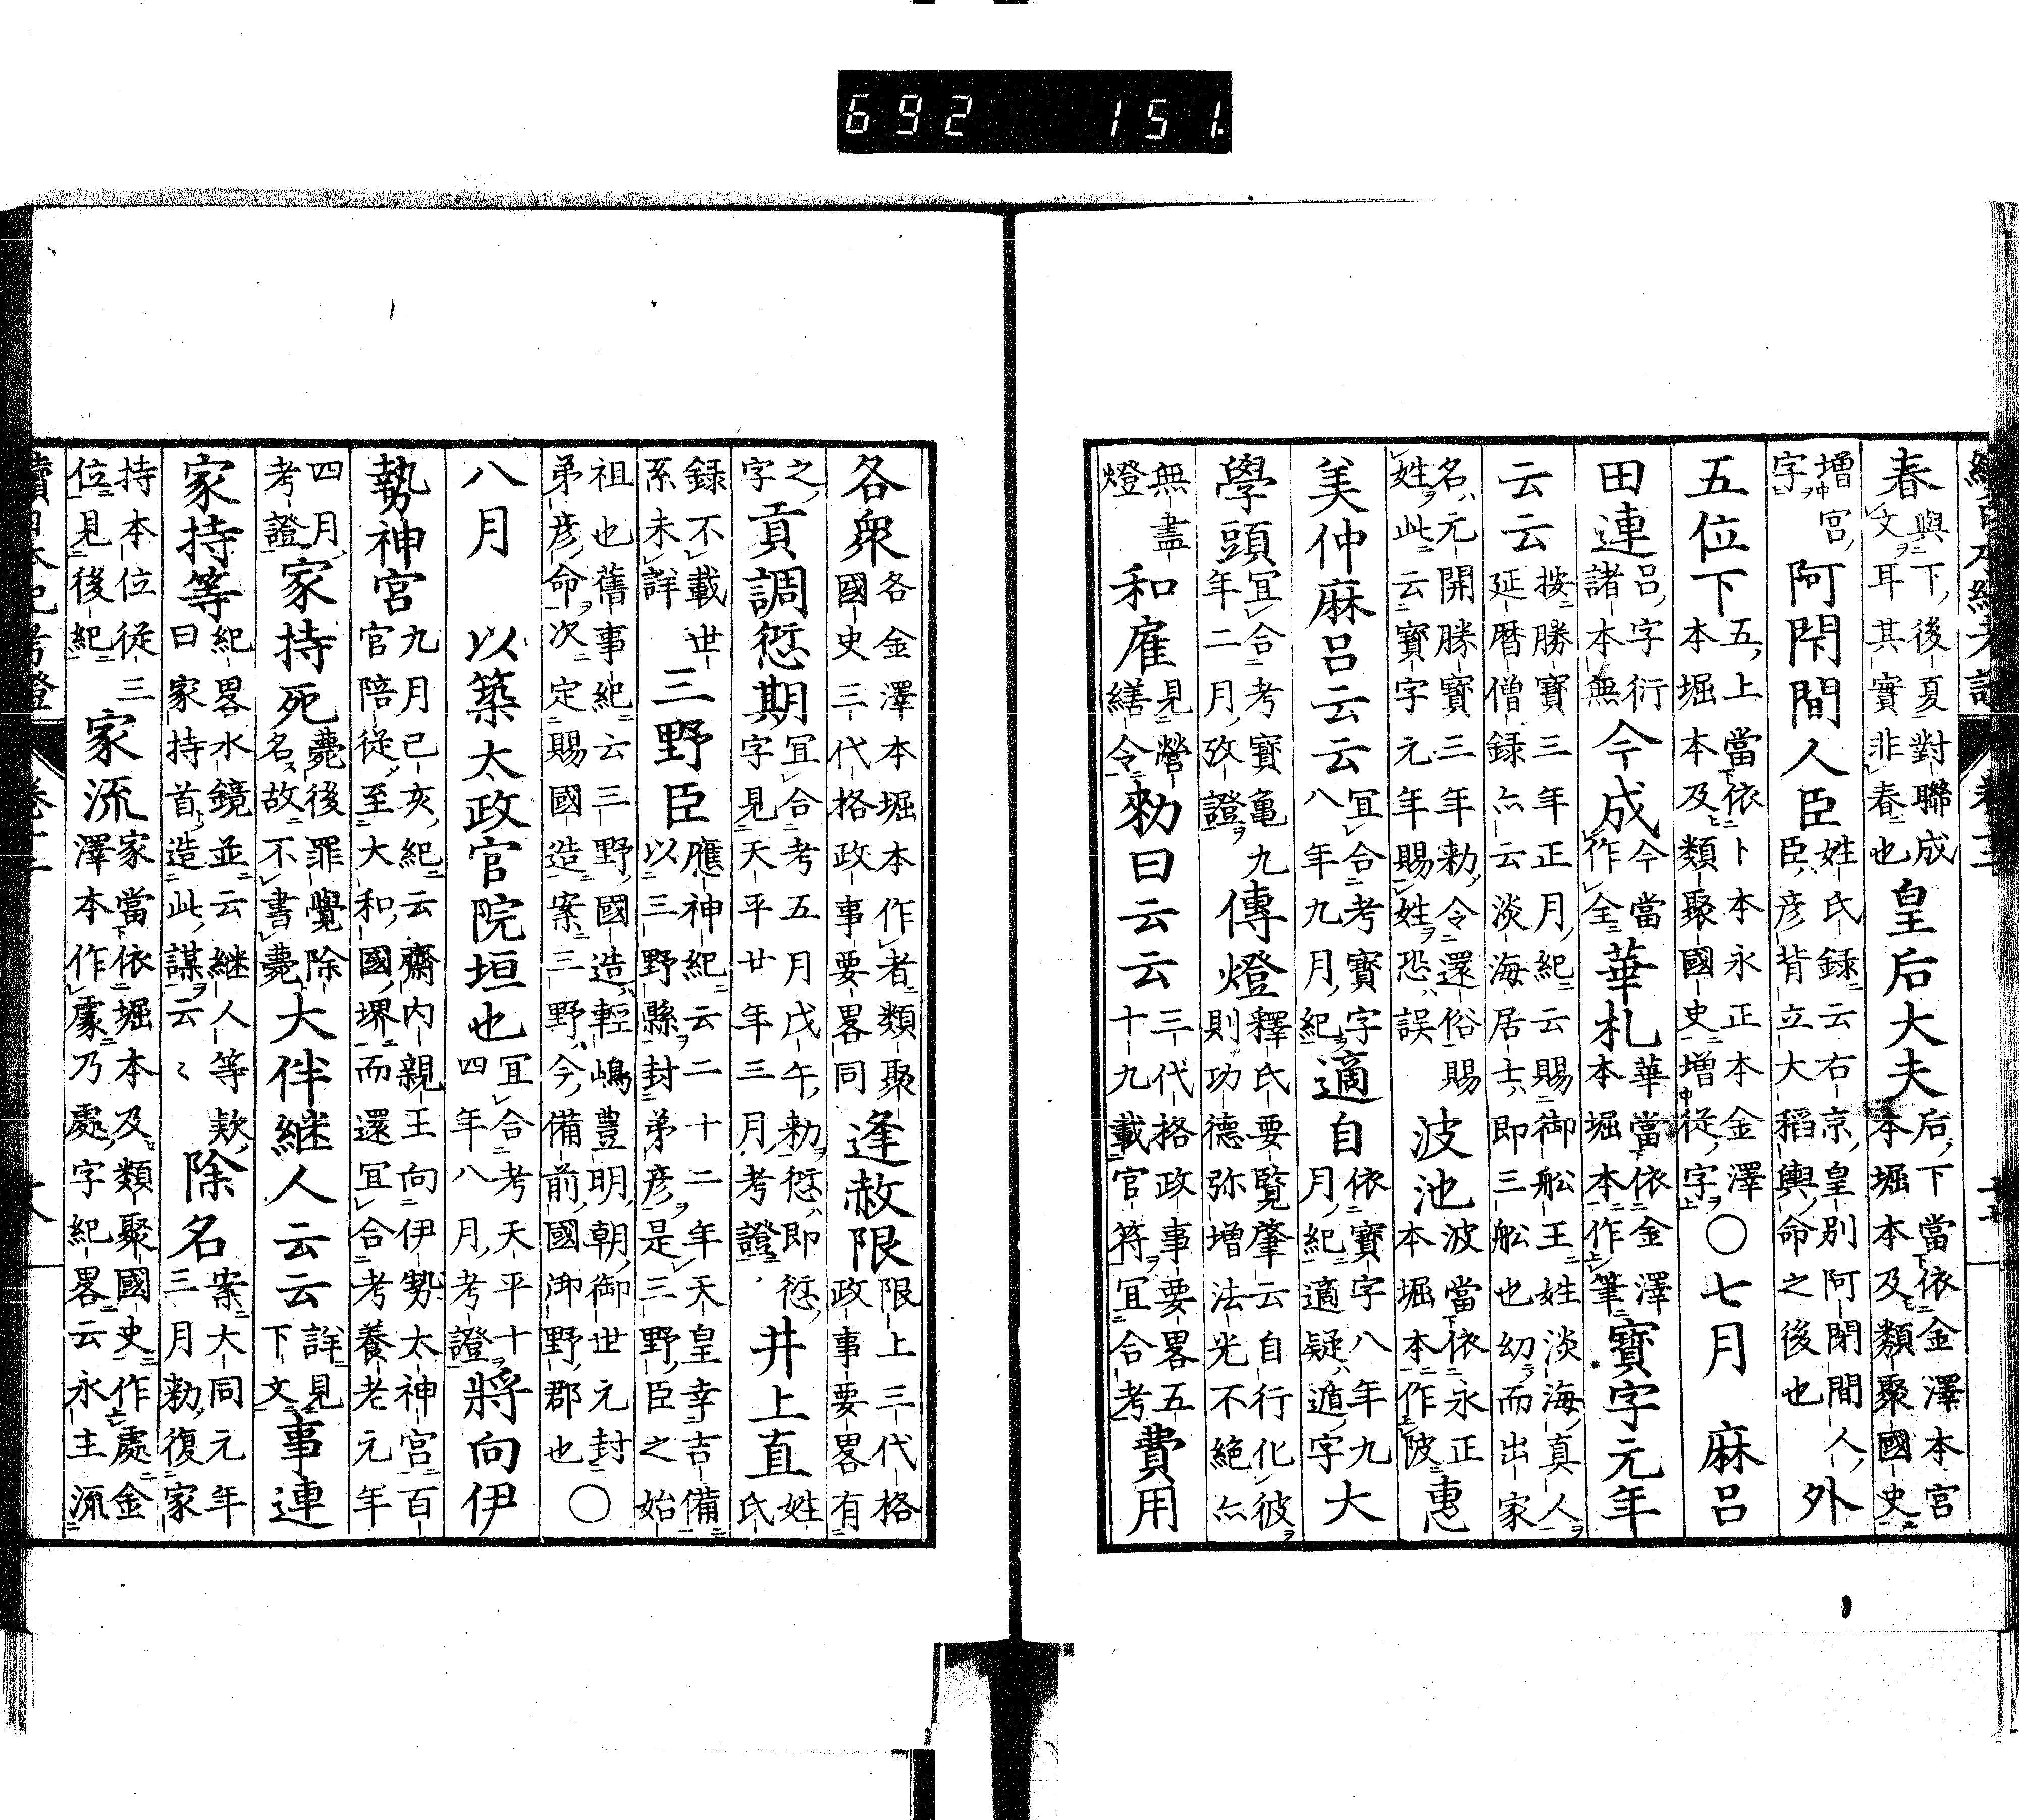 692 151
春 與下後夏對聯成 文耳其實非春也 皇后大夫 后下當依金澤本宮 本堀本及類聚國史
增宮 字 阿閇間人臣 姓氏録云右京皇別阿閇間人 臣彦背立大稻輿命之後也 外
五位下 五上當依卜本永正本金澤 本堀本及類聚國史增從字 ○七月 麻呂
田連 呂字衍 諸本無 今成 今當 作全 華札 華當依金澤 本堀本作筆 寶字元年
云云 按勝寶三年正月紀云賜御舩王姓淡海真人 延暦僧録亦云淡海居士即三舩也幼而出家
名元開勝寶三年勅令還俗賜 姓此云寶字元年賜姓恐誤 波池 波當依永正 本堀本作陂 惠
美仲麻呂云云 宜合考寶字 八年九月紀 適自 依寶字八年九 月紀適疑遁字 大
學頭 宜合考寶亀九 年二月攷證 傳燈 釋氏要覧肇云自行化彼 則功德弥增法光不絶亦
無盡 燈 和雇 見營 繕令 勅曰云云 三代格政事要畧五 十九載官符宜合考 費用
各衆 各金澤本堀本作者類聚 國史三代格政事要畧同 逢赦限 限上三代格 政事要畧有
之 字 貢調愆期 宜合考五月戊午勅愆即愆 字見天平廿年三月考證 井上直 姓 氏
録不載世 系未詳 三野臣 應神紀云二十二年天皇幸吉備 以三野縣封弟彦是三野臣之始
祖也舊事紀云三野國造輕嶋豊明朝御世元封 弟彦命次定賜國造案三野今備前國御野郡也 ○
八月 以築太政官院垣也 宜合考天平十 四年八月考證 將向伊
勢神宮 九月己亥紀云齋内親王向伊勢太神宮百 官陪從至大和國堺而還宜合考養老元年
四月 考證 家持死 薨後罪覺除 名故不書薨 大伴継人云云 詳見 下文 事連
家持等 紀畧水鏡並云継人等欵 曰家持首造此謀云〻 除名 案大同元年 三月勅復家
持本位從三 位見後紀 家流 家當依堀本及類聚國史作處金 澤本作䖏乃處字紀畧云永主流